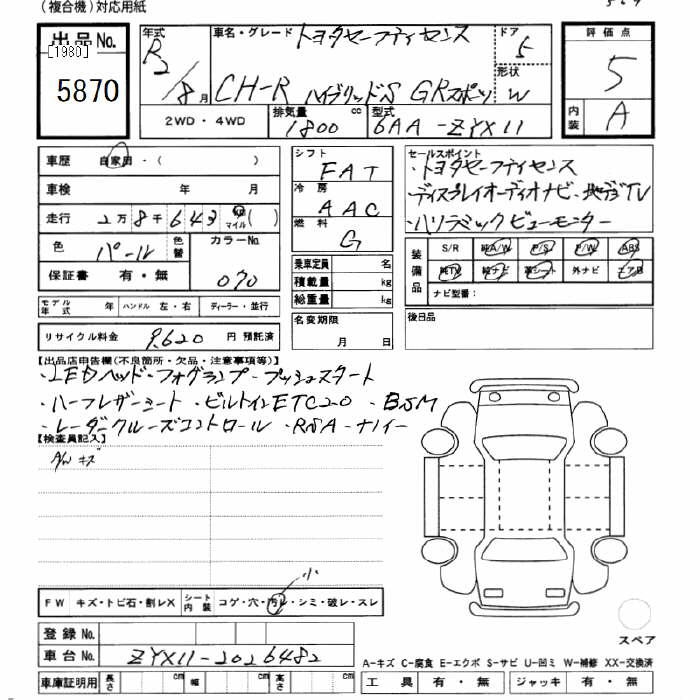 (複合機)対応用紙
出品No.
[1980]
5870
年式 R2/8月
車名・グレード トヨタセーフティセンス
CH-R ハイブリッドS GRスポーツ
ドア 5
形状 W
評価点 5
内装 A
2WD・4WD
排気量 1800 cc
型式 6AA-ZYX11
車歴 自家用・( )
車検 年 月
走行 2万8千643 km マイル ( )
色 パール 色替
カラーNo. 070
保証書 有・無
モデル年式 年 ハンドル 左・右 ディーラー・並行
リサイクル料金 9,620 円 預託済
シフト FAT
冷房 AAC
燃料 G
乗車定員 名
積載量 kg
総重量 kg
名変期限 月 日
セールスポイント
・トヨタセーフティセンス
・ディスプレイオーディオナビ・地デジTV
・パノラミックビューモニター
装備品 S/R 純A/W P/S P/W ABS
純TV 純ナビ 革シート 外ナビ エアB
ナビ型番:
後日品
【出品店申告欄(不良箇所・欠品・注意事項等)】
・LEDヘッド・フォグランプ・プッシュスタート
・ハーフレザーシート・ビルトインETC2.0・BSM
・レーダークルーズコントロール・RSA・ナノイー
【検査員記入】
A/W キズ
小
FW キズ・トビ石・割レX シート内装 コゲ・穴・汚レ・シミ・破レ・スレ
登録No.
車台No. ZYX11-2026482
車庫証明用 長さ cm 幅 cm 高さ cm
スペア
A-キズ C-腐食 E-エクボ S-サビ U-凹ミ W-補修 XX-交換済
工具 有・無 ジャッキ 有・無